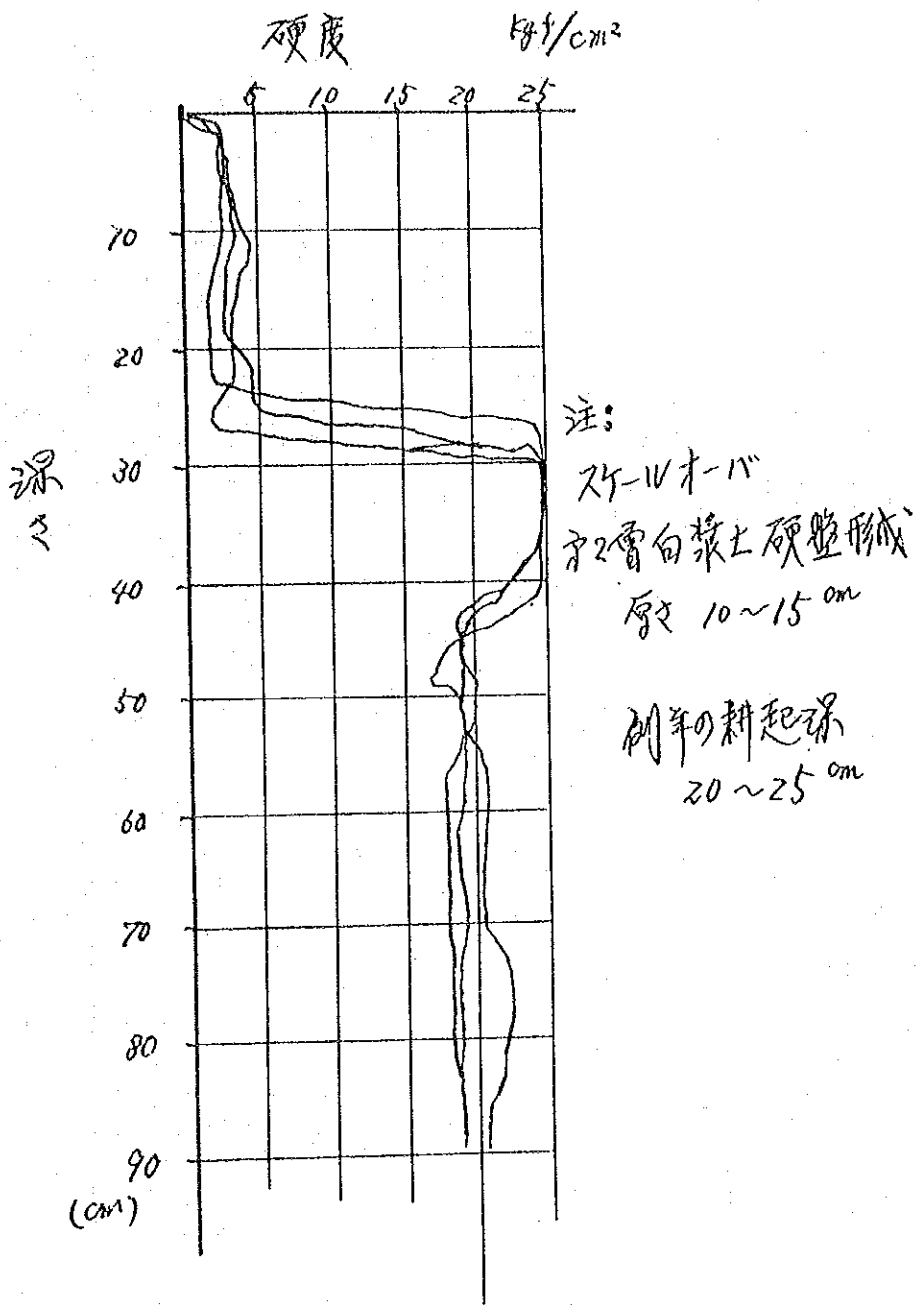 硬度 kgf/cm²
5 10 15 20 25
10
20
30
40
50
60
70
80
90
(cm)
深さ
注:
スケールオーバ
第2層白漿土硬盤形成
厚さ 10~15 cm
例年の耕起深
20~25 cm